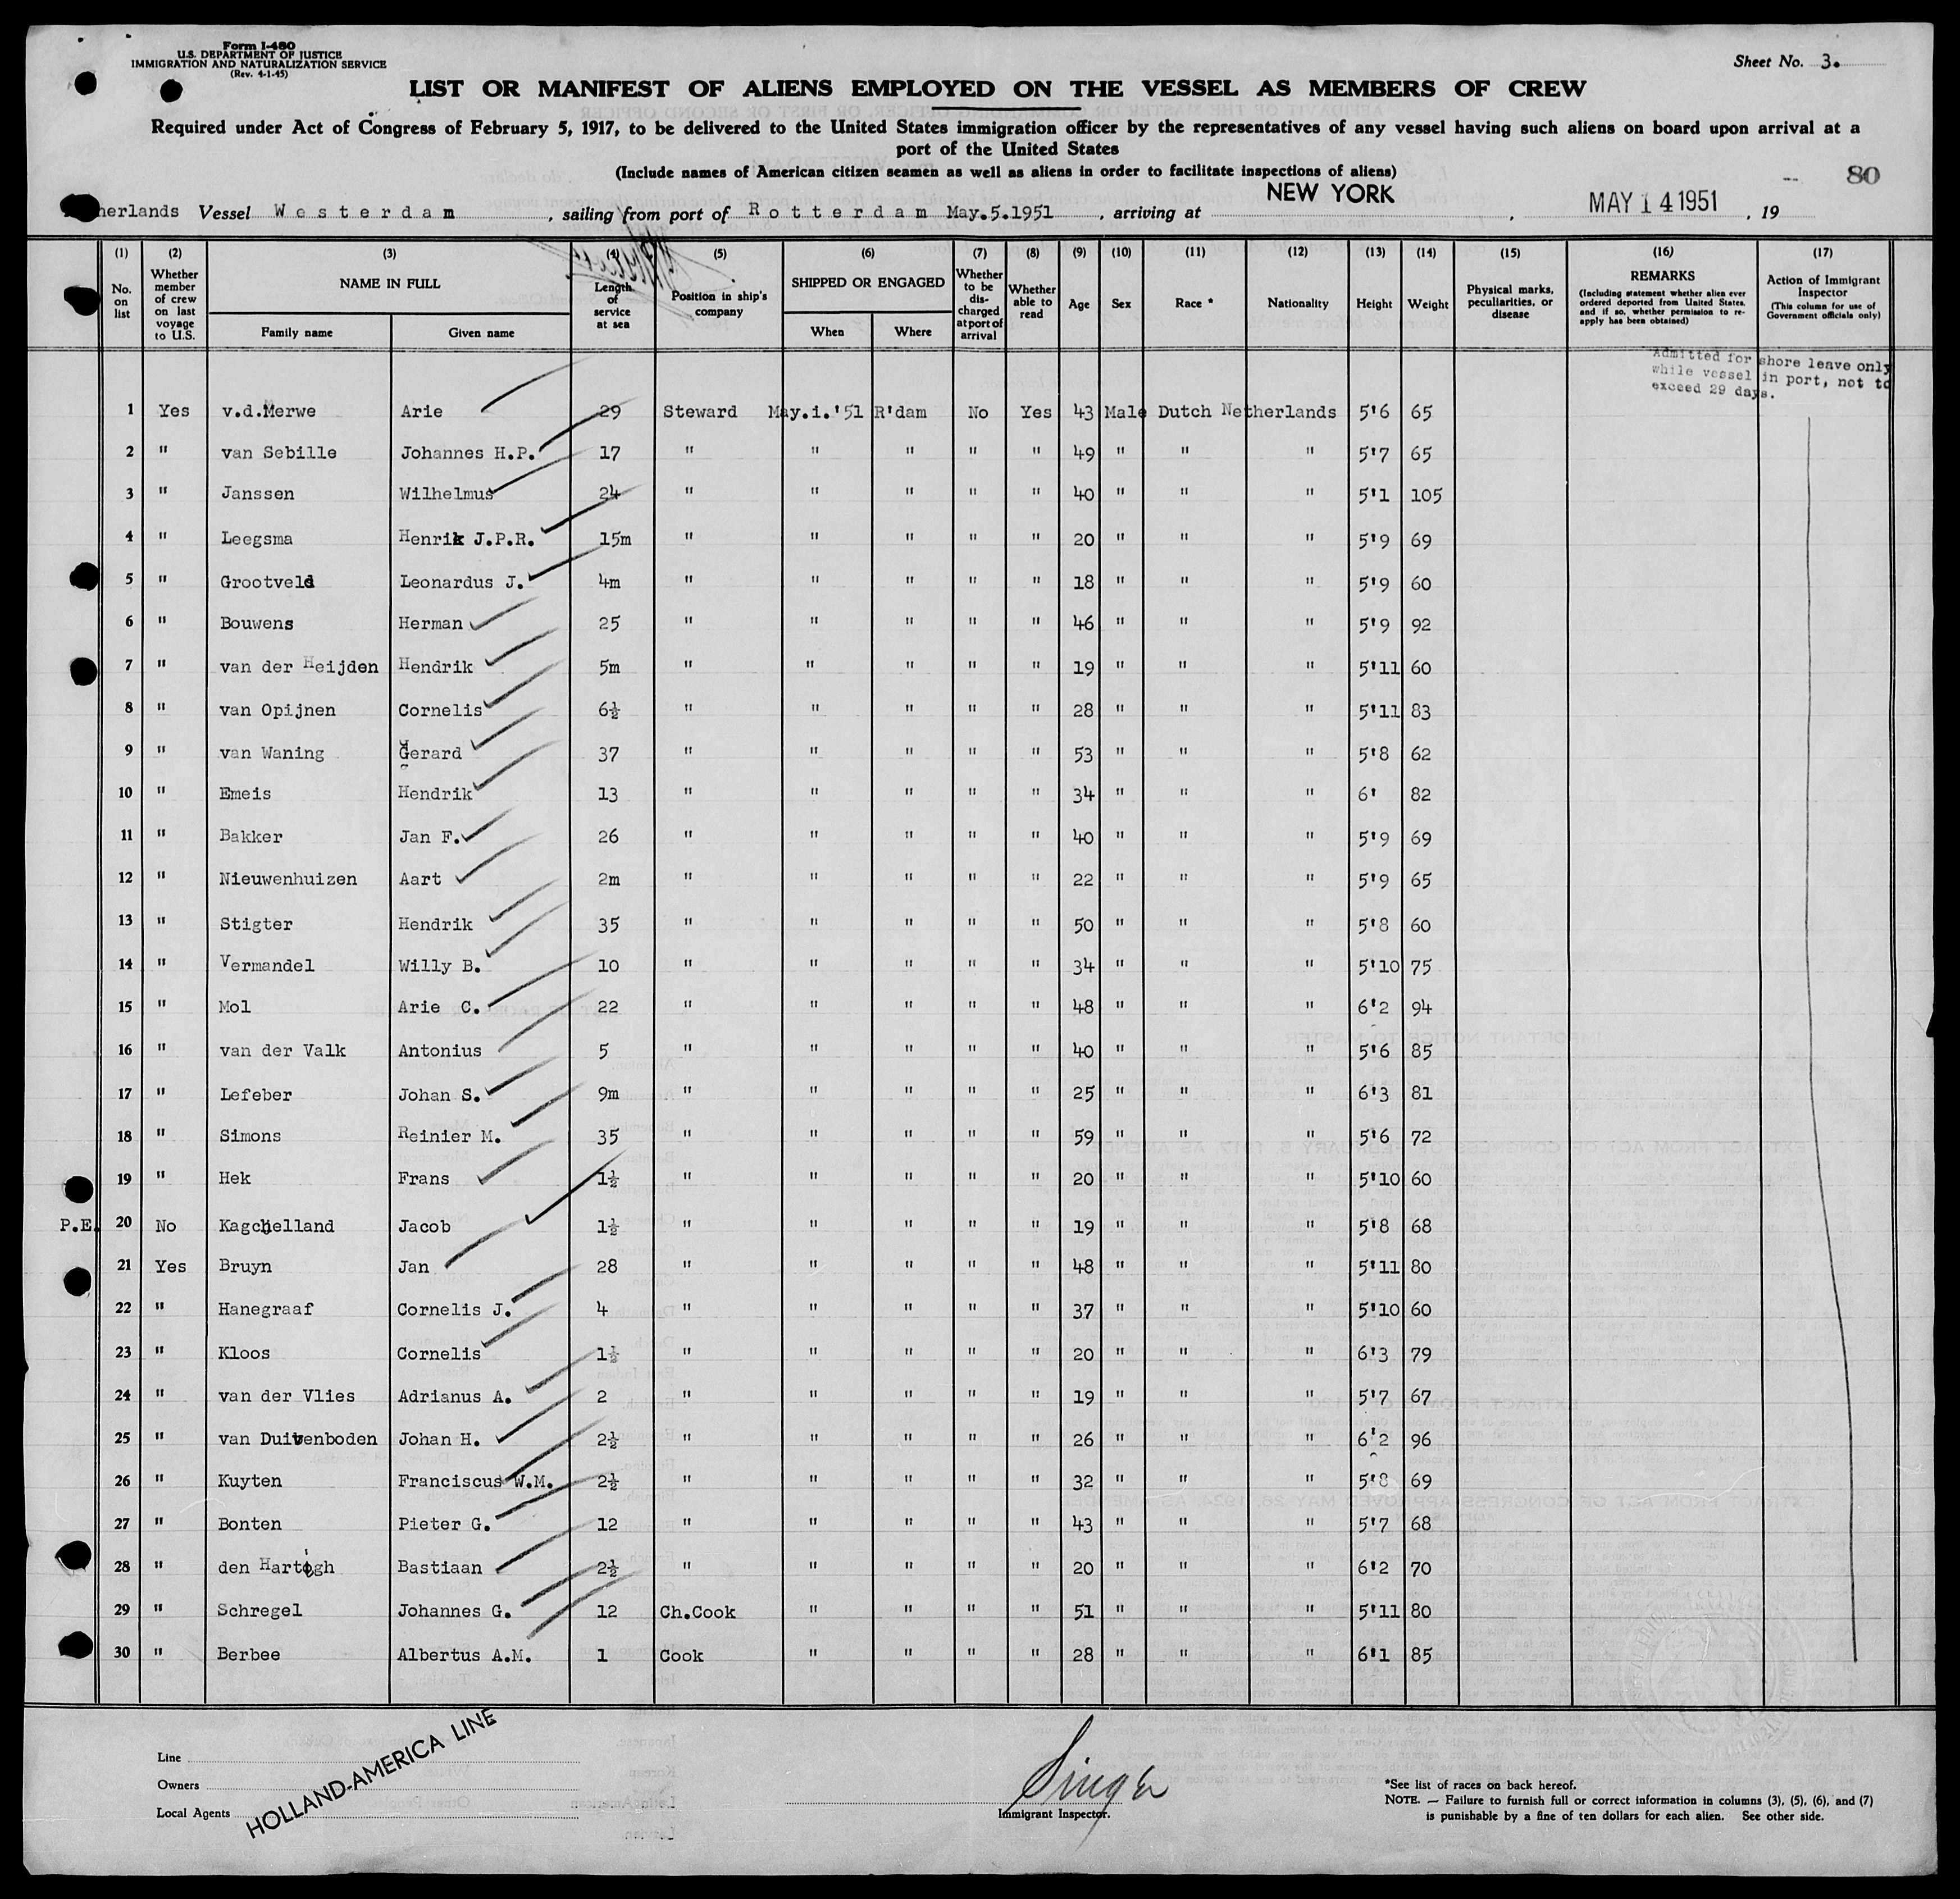 Form I-480
U.S. DEPARTMENT OF JUSTICE
IMMIGRATION AND NATURALIZATION SERVICE
(Rev. 4-1-45)
Sheet No. 3.
LIST OR MANIFEST OF ALIENS EMPLOYED ON THE VESSEL AS MEMBERS OF CREW
Required under Act of Congress of February 5, 1917, to be delivered to the United States immigration officer by the representatives of any vessel having such aliens on board upon arrival at a
port of the United States
(Include names of American citizen seamen as well as aliens in order to facilitate inspections of aliens)
80
herlands Vessel Westerdam, sailing from port of Rotterdam May.5.1951, arriving at NEW YORK, MAY 14 1951, 19
(1) (2) (3) (4) (5) (6) (7) (8) (9) (10) (11) (12) (13) (14) (15) (16) (17)
No. on list
Whether member of crew on last voyage to U.S.
NAME IN FULL
Family name Given name
Length of service at sea
Position in ship's company
SHIPPED OR ENGAGED
When Where
Whether to be discharged at port of arrival
Whether able to read
Age
Sex
Race *
Nationality
Height
Weight
Physical marks, peculiarities, or disease
REMARKS
(Including statement whether alien ever ordered deported from United States, and if so, whether permission to reapply has been obtained)
Action of Immigrant Inspector
(This column for use of Government officials only)
Admitted for shore leave only
while vessel in port, not to
exceed 29 days.
1 Yes v.d.Merwe Arie 29 Steward May.i.'51 R'dam No Yes 43 Male Dutch Netherlands 5'6 65
2 " van Sebille Johannes H.P. 17 " " " " " 49 " " " 5'7 65
3 " Janssen Wilhelmus 24 " " " " " 40 " " " 5'1 105
4 " Leegsma Henrik J.P.R. 15m " " " " " 20 " " " 5'9 69
5 " Grootveld Leonardus J. 4m " " " " " 18 " " " 5'9 60
6 " Bouwens Herman 25 " " " " " 46 " " " 5'9 92
7 " van der Heijden Hendrik 5m " " " " " 19 " " " 5'11 60
8 " van Opijnen Cornelis 6½ " " " " " 28 " " " 5'11 83
9 " van Waning Gerard 37 " " " " " 53 " " " 5'8 62
10 " Emeis Hendrik 13 " " " " " 34 " " " 6' 82
11 " Bakker Jan F. 26 " " " " " 40 " " " 5'9 69
12 " Nieuwenhuizen Aart 2m " " " " " 22 " " " 5'9 65
13 " Stigter Hendrik 35 " " " " " 50 " " " 5'8 60
14 " Vermandel Willy B. 10 " " " " " 34 " " " 5'10 75
15 " Mol Arie C. 22 " " " " " 48 " " " 6'2 94
16 " van der Valk Antonius 5 " " " " " 40 " " " 5'6 85
17 " Lefeber Johan S. 9m " " " " " 25 " " " 6'3 81
18 " Simons Reinier M. 35 " " " " " 59 " " " 5'6 72
19 " Hek Frans 1½ " " " " " 20 " " " 5'10 60
P.E. 20 No Kagchelland Jacob 1½ " " " " " 19 " " " 5'8 68
21 Yes Bruyn Jan 28 " " " " " 48 " " " 5'11 80
22 " Hanegraaf Cornelis J. 4 " " " " " 37 " " " 5'10 60
23 " Kloos Cornelis 1½ " " " " " 20 " " " 6'3 79
24 " van der Vlies Adrianus A. 2 " " " " " 19 " " " 5'7 67
25 " van Duivenboden Johan H. 2½ " " " " " 26 " " " 6'2 96
26 " Kuyten Franciscus W.M. 2½ " " " " " 32 " " " 5'8 69
27 " Bonten Pieter G. 12 " " " " " 43 " " " 5'7 68
28 " den Hartigh Bastiaan 2½ " " " " " 20 " " " 6'2 70
29 " Schregel Johannes G. 12 Ch.Cook " " " " 51 " " " 5'11 80
30 " Berbee Albertus A.M. 1 Cook " " " " 28 " " " 6'1 85
Line
Owners
Local Agents
HOLLAND-AMERICA LINE
Singer
Immigrant Inspector.
*See list of races on back hereof.
NOTE. — Failure to furnish full or correct information in columns (3), (5), (6), and (7)
is punishable by a fine of ten dollars for each alien. See other side.